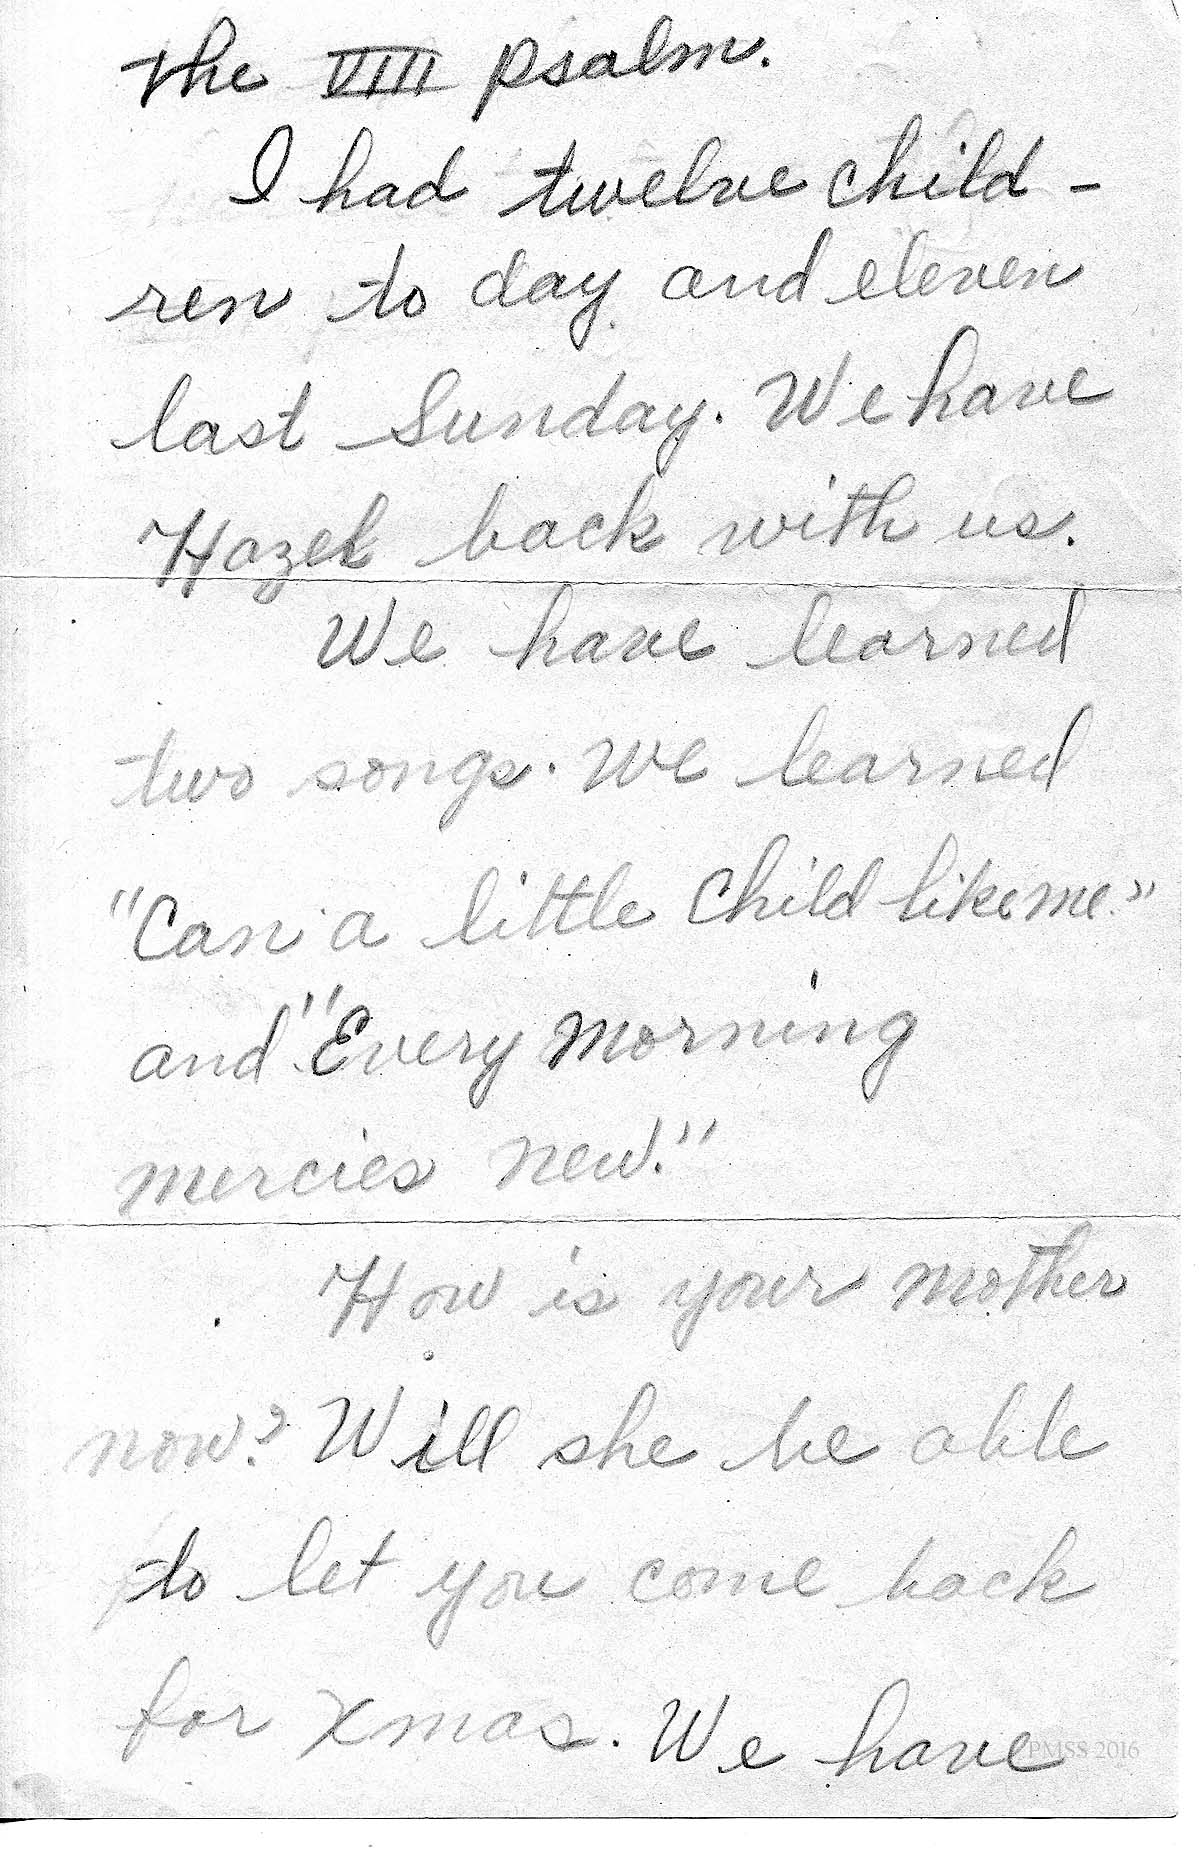 the VIII psalm.
I had twelve child-
ren to day and eleven
last Sunday. We have
Hazel back with us.
We have learned
two songs. We learned
"Can a little Child like me."
and "Every morning
mercies new."
How is your mother
now? Will she be able
to let you come back
for Xmas. We have
PMSS 2016